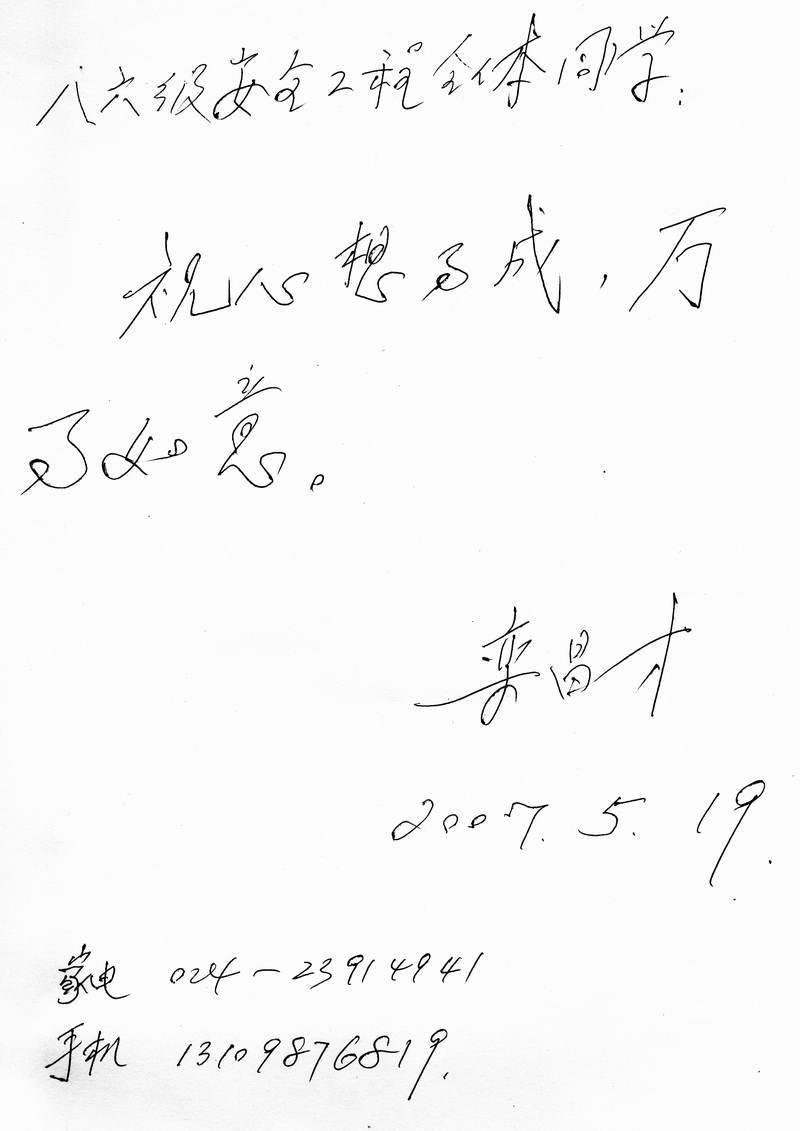 八六级安全工程全体同学：
祝心想事成，万
事如意。
栾昌才
2007.5.19.
家电 024-23914941
手机 13109876819.